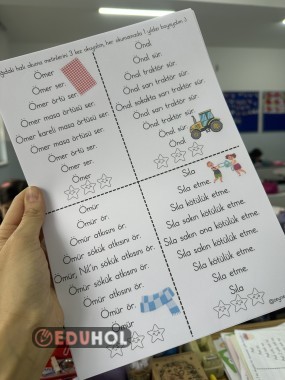 hızlı okuma metinlerini 3 kez okuyalım, her okumamızda 1 yıldız boyayalım :)
Ömer
Ömer ser.
Ömer örtü ser.
Ömer masa örtüsü ser.
Ömer kareli masa örtüsü ser.
Ömer masa örtüsü ser.
Ömer örtü ser.
Ömer ser.
Ömer
Önal
Önal sür.
Önal traktör sür.
Önal sarı traktör sür.
Önal sokakta sarı traktör sür.
Önal sarı traktör sür.
Önal traktör sür.
Önal sür.
Önal
Ömür
Ömür ör.
Ömür atkısını ör.
Ömür sökük atkısını ör.
Ömür, Nil'in sökük atkısını ör.
Ömür sökük atkısını ör.
Ömür atkısını ör.
Ömür ör.
Ömür
Sıla
Sıla etme.
Sıla kötülük etme.
Sıla sakın kötülük etme.
Sıla sakın ona kötülük etme.
Sıla sakın kötülük etme.
Sıla kötülük etme.
Sıla etme.
Sıla
EDUHOL